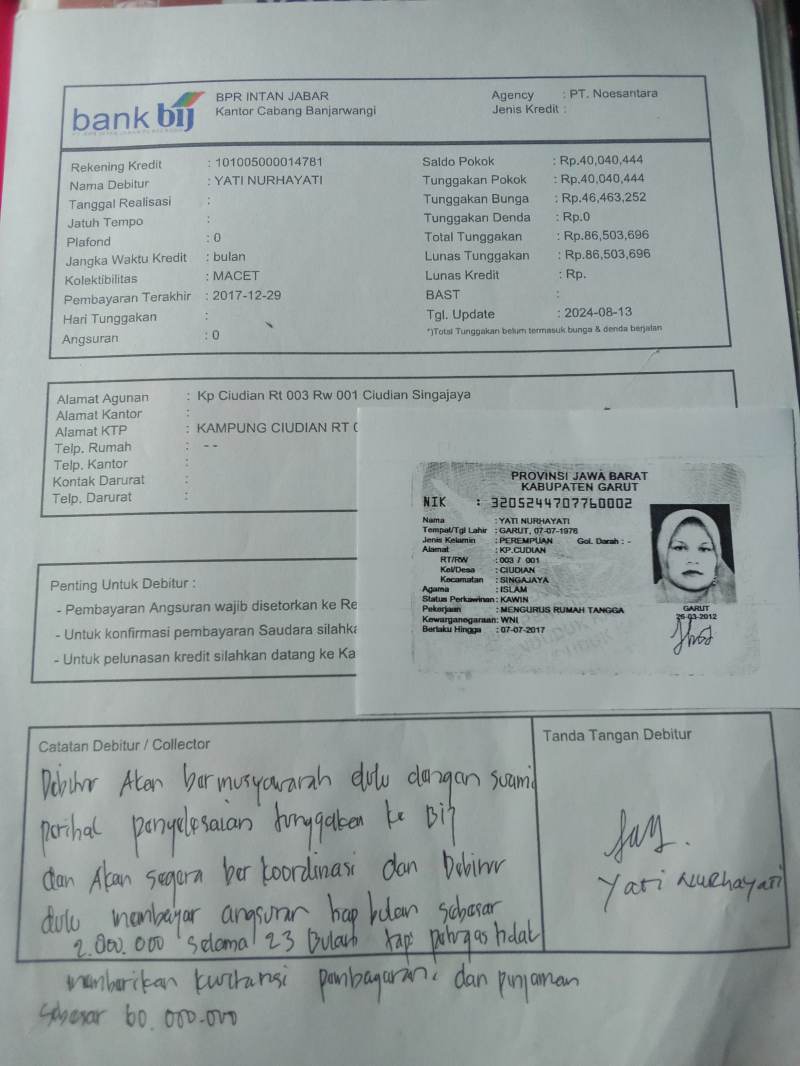 bank bij
BPR INTAN JABAR
Kantor Cabang Banjarwangi
Agency : PT. Noesantara
Jenis Kredit :
Rekening Kredit : 101005000014781
Nama Debitur : YATI NURHAYATI
Tanggal Realisasi :
Jatuh Tempo :
Plafond : 0
Jangka Waktu Kredit : bulan
Kolektibilitas : MACET
Pembayaran Terakhir : 2017-12-29
Hari Tunggakan :
Angsuran : 0
Saldo Pokok : Rp.40,040,444
Tunggakan Pokok : Rp.40,040,444
Tunggakan Bunga : Rp.46,463,252
Tunggakan Denda : Rp.0
Total Tunggakan : Rp.86,503,696
Lunas Tunggakan : Rp.86,503,696
Lunas Kredit : Rp.
BAST :
Tgl. Update : 2024-08-13
*)Total Tunggakan belum termasuk bunga & denda berjalan
Alamat Agunan : Kp Ciudian Rt 003 Rw 001 Ciudian Singajaya
Alamat Kantor :
Alamat KTP : KAMPUNG CIUDIAN RT
Telp. Rumah : - -
Telp. Kantor :
Kontak Darurat :
Telp. Darurat :
PROVINSI JAWA BARAT
KABUPATEN GARUT
NIK : 3205244707760002
Nama : YATI NURHAYATI
Tempat/Tgl Lahir : GARUT, 07-07-1976
Jenis Kelamin : PEREMPUAN Gol. Darah : -
Alamat : KP.CUDIAN
RT/RW : 003 / 001
Kel/Desa : CIUDIAN
Kecamatan : SINGAJAYA
Agama : ISLAM
Status Perkawinan: KAWIN
Pekerjaan : MENGURUS RUMAH TANGGA
Kewarganegaraan: WNI
Berlaku Hingga : 07-07-2017
GARUT
26-03-2012
Penting Untuk Debitur :
- Pembayaran Angsuran wajib disetorkan ke Re
- Untuk konfirmasi pembayaran Saudara silahka
- Untuk pelunasan kredit silahkan datang ke Ka
Catatan Debitur / Collector
Debitur Akan bermusyawarah dulu dangan suami
perihal penyelesaian tunggakan ke Bij
dan Akan segera ber koordinasi dan Debitur
dulu membayar angsuran tiap bulan sebesar
2.000.000 selama 23 Bulan tapi petugas tidak
memberikan kwitansi pembayaran, dan pinjaman
sebesar 60.000.000
Tanda Tangan Debitur
Yati Nurhayati